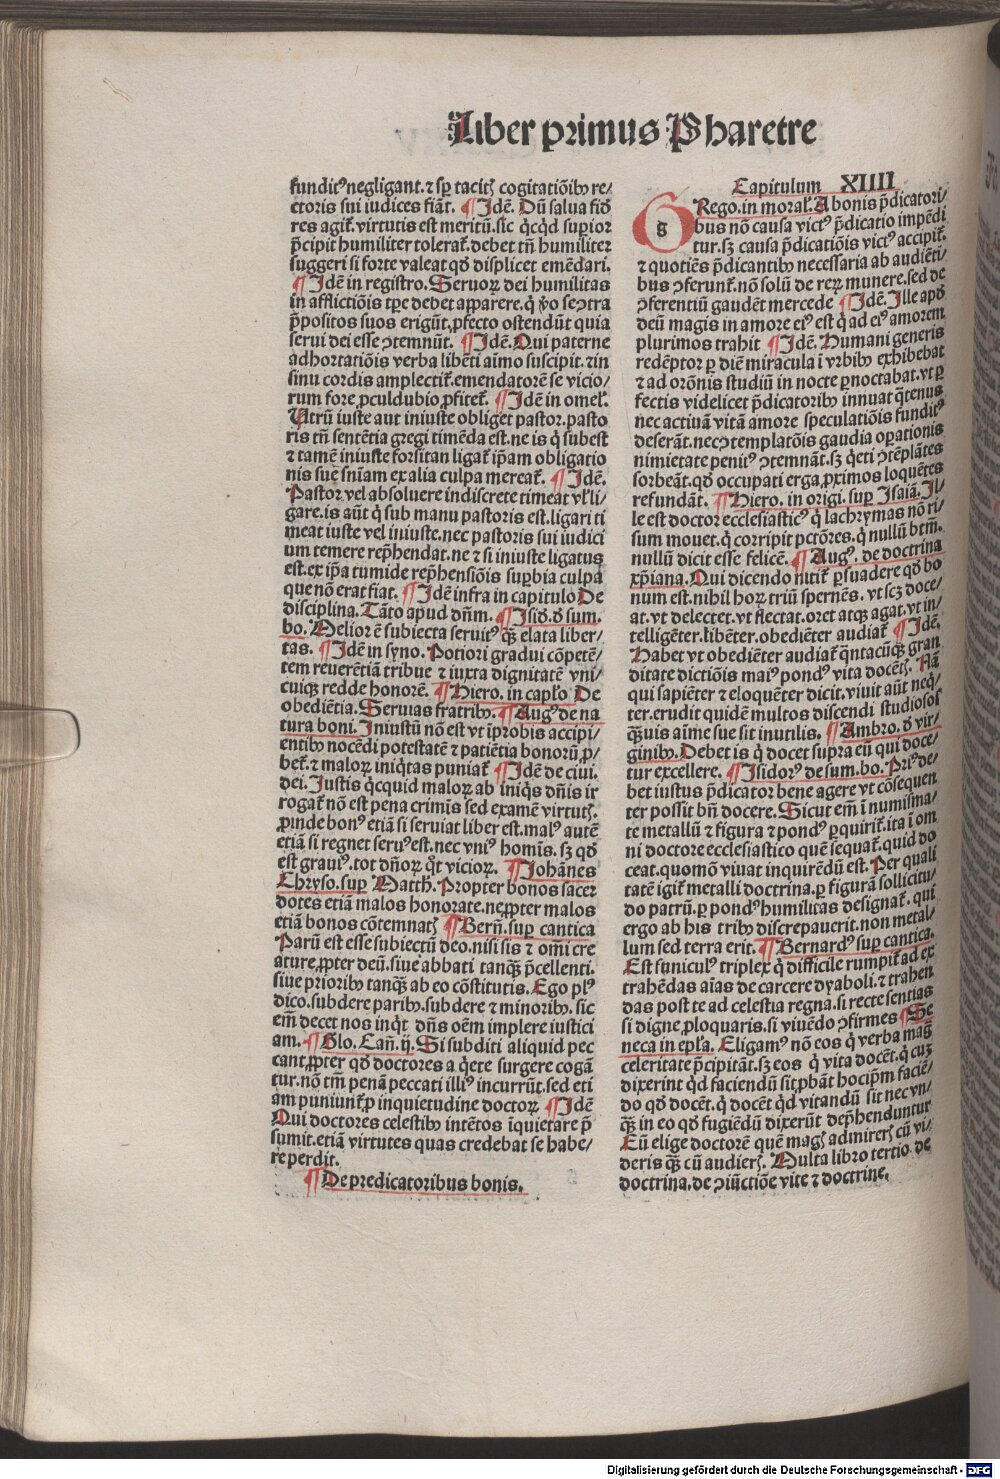 Liber primus Pharetre
funditꝰ negligant. ⁊ sꝑ tacitꝭ cogitatiōibꝰ re/
ctoris sui iudices fiāt. ¶ Idē. Dū salua fide
res agit̃. virtutis est meritū. sic q̇cqd supior
p̄cipit humiliter tolerat̃. debet tn̄ humiliter
suggeri si forte valeat qd displicet emēdari.
¶ Idē in registro. Seruoꝝ dei humilitas
in afflictiōis tꝑe debet apparere. q̇ ꝟo se ꝯtra
p̄positos suos erigūt. ꝓfecto ostendūt quia
serui dei esse ꝯtemnūt. ¶ Idē. Qui paterne
adhortatiōis verba libēti aīmo suscipit. ⁊ in
sinu cordis amplectit̃. emendatorē se vicio/
rum fore ꝓculdubio ꝓfitet̃. ¶ Idē in omel'.
Utrū iuste aut iniuste obliget pastor. pasto
ris tn̄ sentētia gregi timēda est. ne is q̇ subest
⁊ tamē iniuste forsitan ligat̃ ip̄am obligatio
nis sue sn̄iam ex alia culpa mereat̃. ¶ Idē.
Pastor vel absoluere indiscrete timeat vl' li/
gare. is aūt q̇ sub manu pastoris est. ligari ti
meat iuste vel iniuste. nec pastoris sui iudici
um temere rep̄hendat. ne ⁊ si iniuste ligatus
est. ex ip̄a tumide rep̄hensiōis suꝑbia culpa
que nō erat fiat. ¶ Idē infra in capitulo De
disciplina. Tāto apud dn̄m. ¶ Isid. d sum.
bo. Melior ē subiecta seruitꝰ q̄ꝫ elata liber/
tas. ¶ Idē in syno. Potiori gradui cōpetē/
tem reuerētiam tribue ⁊ iuxta dignitatē vni/
cuiqꝫ redde honorē. ¶ Hiero. in cap̄lo De
obediētia. Seruias fratribꝰ. ¶ Augꝰ de na
tura boni. Iniustū nō est vt īprobis accipi/
entibꝰ nocēdi potestatē ⁊ patiētia bonorū ꝓ/
bet̃. ⁊ maloꝝ iniq̇tas puniat̃ ¶ Idē de ciui.
dei. Iustis q̇cquid maloꝝ ab iniq̇s dn̄is ir
rogat̃ nō est pena crimīs sed examē virtutꝭ.
ꝓinde bonꝰ etiā si seruiat liber est. malꝰ autē
etiā si regnet seruꝰ est. nec vniꝰ homīs. sꝫ qd
est grauiꝰ. tot dn̄oꝝ q̊t vicioꝝ. ¶ Johānes
Chryso. sup Matth̄. Propter bonos sacer
dotes etiā malos honorate. ne ꝓpter malos
etiā bonos cōtemnatꝭ ¶ Bern̄. suꝑ cantica
Parū est esse subiectū deo. nisi sis ⁊ om̄i cre
ature ꝓpter deū. siue abbati tanq̄ꝫ p̄cellenti.
siue prioribꝰ tanq̄ꝫ ab eo cōstitutis. Ego plꝰ
dico. subdere paribꝰ. subdere ⁊ minoribꝰ. sic
em̄ decet nos inq̇t dn̄s oēm implere iustici
am. ¶ Glo. Can̄. ij. Si subditi aliquid pec
cant ꝓpter qd doctores a q̇ete surgere cogā
tur. nō tm̄ penā peccati illiꝰ incurrūt. sed eti
am puniunt̃ ꝓ inquietudine doctoꝝ ¶ Idē
Qui doctores celestibꝰ intētos īquietare p̄
sumit. etiā virtutes quas credebat se habe/
re perdit.
¶ De predicatoribus bonis.
Capitulum XIIII
GRego. in moral'. A bonis p̄dicatori/
bus nō causa victꝰ p̄dicatio impēdi
tur. sꝫ causa p̄dicatiōis victꝰ accipit̃.
⁊ quotiēs p̄dicantibꝰ necessaria ab audiēti/
bus ꝯferunt̃. nō solū de reꝝ munere. sed de
ꝯferentiū gaudēt mercede ¶ Idē. Ille apd
deū magis in amore eiꝰ est q̇ ad eiꝰ amorem
plurimos trahit ¶ Idē. Humani generis
redēptor ꝑ diē miracula ī vrbibꝰ exhibebat
⁊ ad orōnis studiū in nocte ꝑnoctabat. vt ꝑ
fectis videlicet p̄dicatoribꝰ innuat q̄tenus
nec actiuā vitā amore speculatiōis funditꝰ
deserāt. nec ꝯtemplatōis gaudia oꝑationis
nimietate penitꝰ ꝯtemnāt. sꝫ q̇eti ꝯtēplātes
sorbeāt. qd occupati erga ꝓximos loquētes
refundāt. ¶ Hiero. in origi. sup Isaiā. Il/
le est doctor ecclesiasticꝰ q̇ lachrymas nō ri/
sum mouet. q̇ corripit pctōres. q̇ nullū btm̄.
nullū dicit esse felicē. ¶ Augꝰ. de doctrina
xp̄iana. Qui dicendo nitit̃ ꝑsuadere qd bo
num est. nihil hoꝝ triū spernēs. vt scꝫ doce/
at. vt delectet. vt flectat. oret atqꝫ agat. vt in/
telligēter. libēter. obediēter audiat̃ ¶ Idē.
Habet vt obediēter audiat̃ q̄ntacūqꝫ gran
ditate dictiōis maiꝰ pondꝰ vita docētꝭ. Nā
qui sapiēter ⁊ eloquēter dicit. viuit aūt neq̇/
ter. erudit quidē multos discendi studiosos
q̄ꝫuis aīme sue sit inutilis. ¶ Ambro. d vir/
ginibꝰ. Debet is q̇ docet supra eū qui doce/
tur excellere. ¶ Isidorꝰ de sum. bo. Priꝰ de/
bet iustus p̄dicator bene agere vt cōsequen
ter possit bn̄ docere. Sicut em̄ ī numisma/
te metallū ⁊ figura ⁊ pondꝰ ꝑquirit̃. ita ī om
ni doctore ecclesiastico quē sequat̃. quid do
ceat. quomō viuat inquirēdū est. Per quali
tatē igit̃ metalli doctrina. ꝑ figurā sollicitu/
do patrū. ꝑ pondꝰ humilitas designat̃. qui
ergo ab his tribꝰ discrepauerit. non metal/
lum sed terra erit. ¶ Bernardꝰ sup cantica.
Est funiculꝰ triplex q̇ difficile rumpit̃ ad ex
trahēdas aīas de carcere dyaboli. ⁊ trahen
das post te ad celestia regna. si recte sentias
si digne ꝓloquaris. si viuēdo ꝯfirmes ¶ Se
neca in epl'a. Eligamꝰ nō eos q̇ verba mag̃
celeritate p̄cipitāt. sꝫ eos q̇ vita docēt. q̇ cuꝫ
dixerint qd faciendū sit. ꝓbāt hoc ip̄m faciē/
do qd docēt. q̇ docēt qd vitandū sit nec vn/
q̄ꝫ in eo qd fugiēdū dixerūt dep̄henduntur
Eū elige doctorē quē magꝭ admirerꝭ cū vi/
deris q̄ꝫ cū audierꝭ. Multa libro tertio de
doctrina. de ꝯiūctiōe vite ⁊ doctrine.
Digitalisierung gefördert durch die Deutsche Forschungsgemeinschaft - DFG